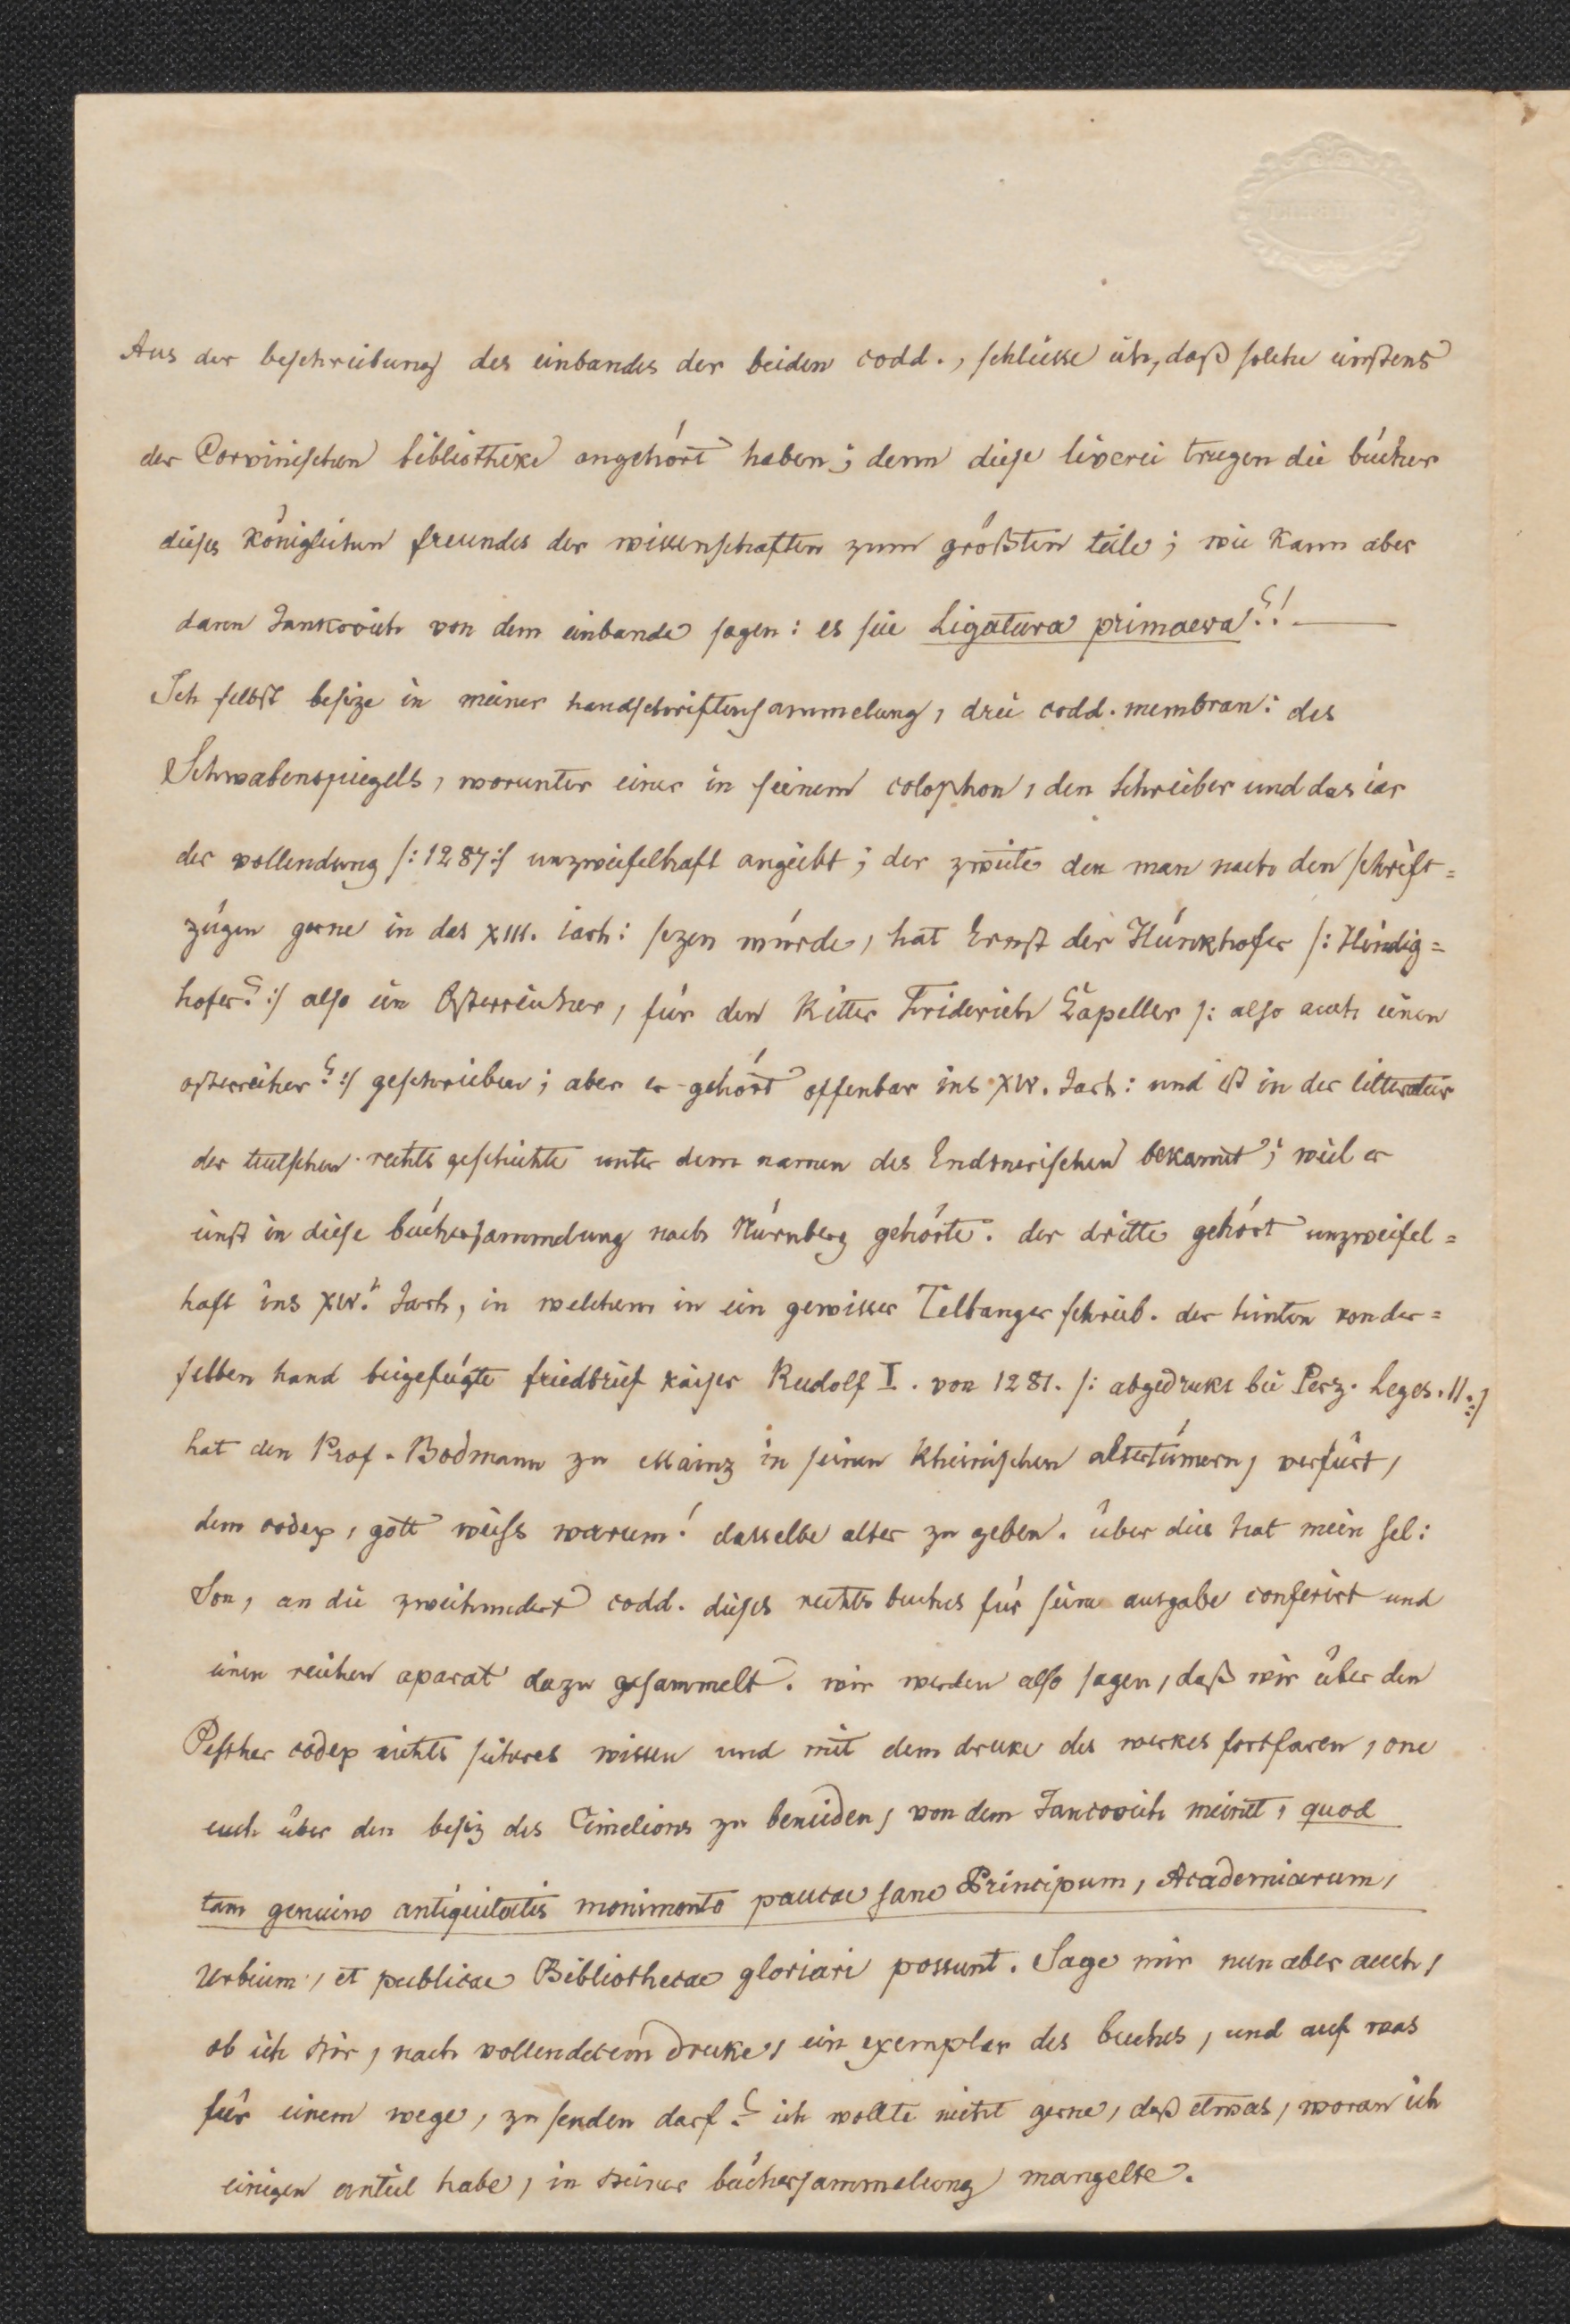 Aus der beschreibung des einbandes der beiden codd., schliesse ich, daß solche einstens
der Corvinischen bibliotheke angehört haben; denn diese liverei trugen die bücher
dieses königlichen freundes der wissenschaften zum größten teile; wie kann aber
dann Jankovich von dem einbande sagen: es seie Ligatura primaeva?! —
Ich selbst besize in meiner handschriftensammelung, drei codd. membran: des
Schwabenspiegels, worunter einer in seinem colophon, den schreiber und das iar
der vollendung /:1287:/ unzweifelhaft angiebt; der zweite den man nach den schrift=
zügen gerne in das XIII. iarh: sezen würde, hat Ernst der Hünkhofer /: Hindig=
hofer? :/ also ein Österreicher, für den Ritter Friderich Capeller /: also auch einen
österreicher? :/ geschrieben; aber er gehört offenbar ins XIV. Jarh: und ist in der litteratur
der teutschen rechts geschichte unter dem namen des Endnerischen bekannt; weil er
einst in diese büchersammelung nach Nürnberg gehörte. der dritte gehört unzweifel=
haft ins XIV. Jarh, in welchem in ein gewisser Telbanger schrieb. der hinten von der=
selben hand beigefügte friedbrief kaiser Rudolf I. von 1281. /: abgedrukt bei Perz. Leges. II. :/
hat den Prof. Bodmann zu Mainz in seinen Rheinischen altertümern, verfürt,
dem codex, gott weiß warum! dasselbe alter zu geben. über dies hat mein sel:
Son, an die zweihundert codd. dieses rechts buches für seine ausgabe conferirt und
einen reichen aparat dazu gesammelt. wir werden also sagen, daß wir über den
Pesther codex nichts sicheres wissen und mit dem druke des werkes fortfaren, one
euch über den besiz des Cimelions zu beneiden, von dem Jancovich meint, quod
tam genuino antiquitatis monimento paucae sane Principum, Academiarum,
Urbium, et publicae Bibliothecae gloriari possunt. Sage mir nun aber auch,
ob ich dir, nach vollendetem druke, ein exemplar des buches, und auf was
für einem wege, zu senden darf? ich wollte nicht gerne, daß etwas, woran ich
einigen anteil habe, in deiner büchersammelung mangelte.